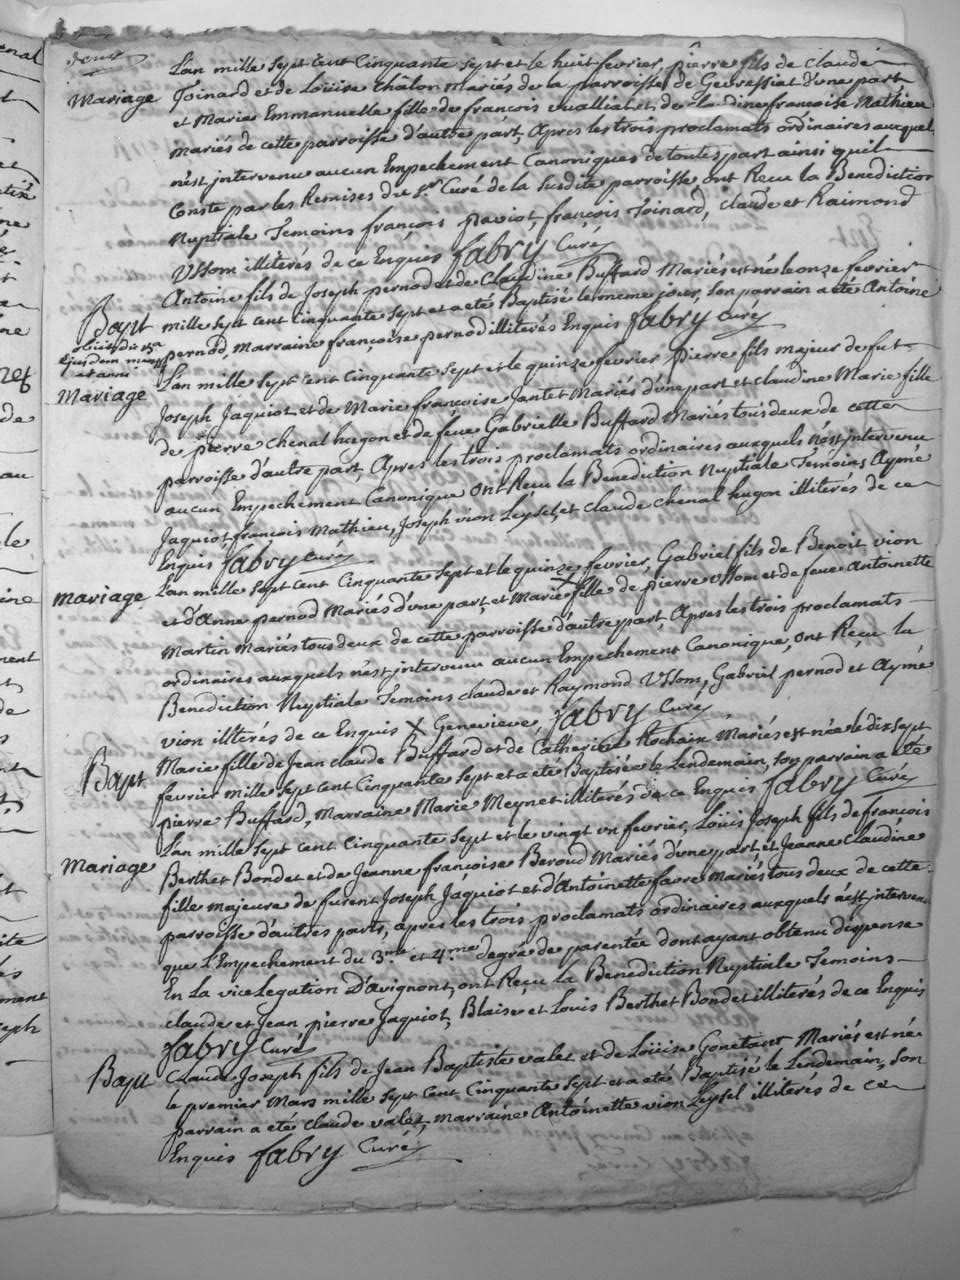 L'an mille sept cent Cinquante sept et le huit fevrier, pierre fils de Claude
Mariage
Joinard et de Loüise Châlon mariés de la parroisse de Gevressiat d'une part
et Marie Emmanuelle fille de françois vualliat et de Claudine francoise Mathieu
mariés de cette parroisse d'autre part, Apres les trois proclamats ordinaires auxquels
n'est intervenu aucun Empechement Canoniques de toutes part ainsi qu'il
Conste par les Remises du Sr Curé de la susdite parroisse ont Reçu la Benediction
Nuptiale Temoins françois flaviot, françois Joinard, claude et Raimond
Ussom illiterés de ce Enquis fabry Curé
Antoine fils de Joseph pernod et de Claudine Buffard Mariés est né le onze fevrier
Bapt
mille sept cent Cinquante sept et a etés Baptisé le meme jour, son parrain a eté Antoine
pernod, Marraine françoise pernod illiterés Enquis fabry Curé
L'an mille sept cent Cinquante sept et le quinze fevrier pierre fils majeur de fut
Mariage
Joseph Jaquiot et de Marie francoise Jantet Mariés d'une part et claudine Marie fille
de pierre Chenal hugon et de feue Gabrielle Buffard Mariés tous deux de cette
parroisse d'autre part, Apres les trois proclamats ordinaires auxquels n'est intervenu
aucun Empechement Canonique ont Reçu la Benediction Nuptiale Témoins Aymé
Jaquiot, françois Mathieu, Joseph vion Leysel, et claude Chenal hugon illiterés de ce
Enquis fabry Curé
L'an mille sept cent Cinquante sept et le quinze fevrier, Gabriel fils de Benoit vion
mariage
et d'Anne pernod Mariés d'une part et Marie X fille de pierre Ussom et de feue Antoinette
Martin Mariés tous deux de cette parroisse d'autre part, Apres les trois proclamats
ordinaires auxquels n'est intervenu aucun Empechement Canonique, ont Reçu la
Benediction Nuptiale Témoins claude et Raymond Ussom, Gabriel pernod et Aymé
vion illiterés de ce Enquis X Genevieve, fabry Curé
Marie fille de Jean claude Buffard et de Catherine Rochaix Mariés est née le dix sept
Bapt
fevrier mille sept cent Cinquante sept et a eté Baptisée le Lendemain, son parrain a eté
pierre Buffard, Marraine Marie Meynet illiterés de ce Enquis fabry Curé
L'an mille sept cent Cinquante sept et le vingt un fevrier, Loüis Joseph fils de françois
Mariage
Berthet Bondet et de Jeanne françoise Beroud Mariés d'une part et Jeanne Claudine
fille majeure de furent Joseph Jaquiot et d'Antoinette favre Mariés tous deux de cette
parroisse d'autres parts, apres les trois proclamats ordinaires auxquels n'est intervenu
que l'Empechement du 3me et 4me degré de parentée dont ayant obtenu dispense
En La vice Legation D'avignont, ont Reçu la Benediction Nuptiale Témoins
claude et Jean pierre Jaquiot, Blaise et Louis Berthet Bondet illiterés de ce Enquis
fabry Curé
Bapt
Claude Joseph fils de Jean Baptiste valet et de Loüise Gonetant Mariés est né
le premier Mars mille sept cent Cinquante sept et a eté Baptisé le Lendemain, son
parrain a eté claude valet, marraine Antoinette vion Leysel illiteres de ce
Enquis fabry Curé